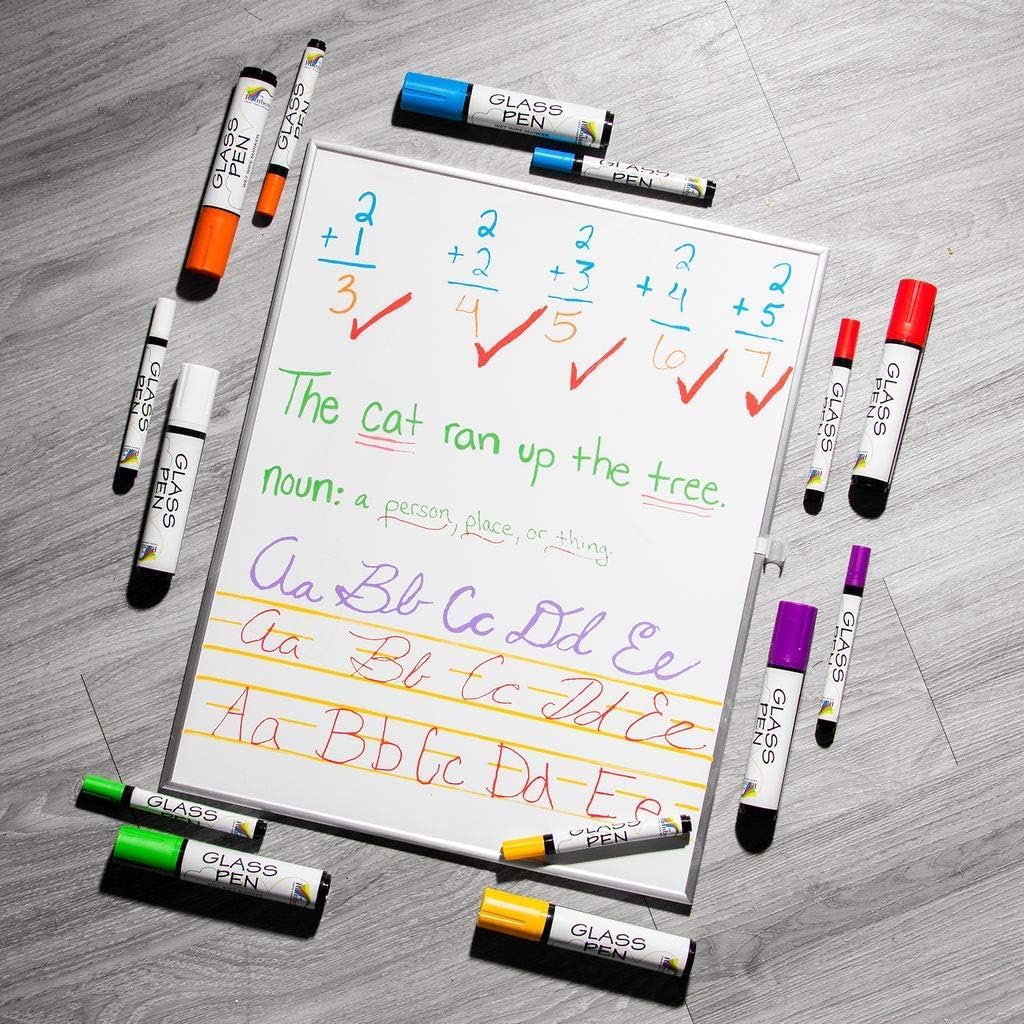 GLASS PEN
WET WIPE MARKER
GLASS PEN
GLASS PEN
WET WIPE MARKER
GLASS PEN
2 2 2 2 2
+ 1 + 2 + 3 + 4 + 5
3 4 5 6 7
The cat ran up the tree.
noun: a person, place, or thing.
Aa Bb Cc Dd Ee
Aa Bb Cc Dd Ee
Aa Bb Cc Dd Ee
GLASS PEN
GLASS PEN
GLASS PEN
GLASS PEN
GLASS PEN
GLASS PEN
GLASS PEN
GLASS PEN
GLASS PEN
GLASS PEN